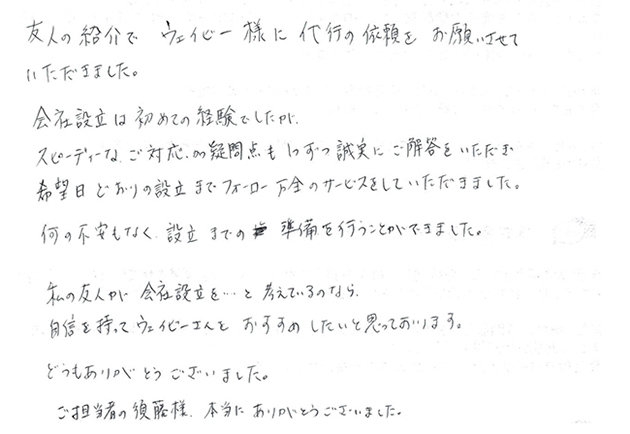 友人の紹介で ウェイビー様に 代行の依頼を お願いさせて
いただきました。
会社設立は 初めての経験でしたが、
スピーディーな、ご対応、疑問点も 1つずつ 誠実に ご解答をいただき
希望日 どおりの設立 まで フォーロー 万全のサービスをしていただきました。
何の不安もなく、設立 までの 準備を行うことができました。
私の友人が 会社設立を…と 考えているのなら、
自信を持って ウェイビーさんを おすすめ したいと思っております。
どうもありがとう ございました。
ご担当者の 須藤様、本当に ありがとうございました。